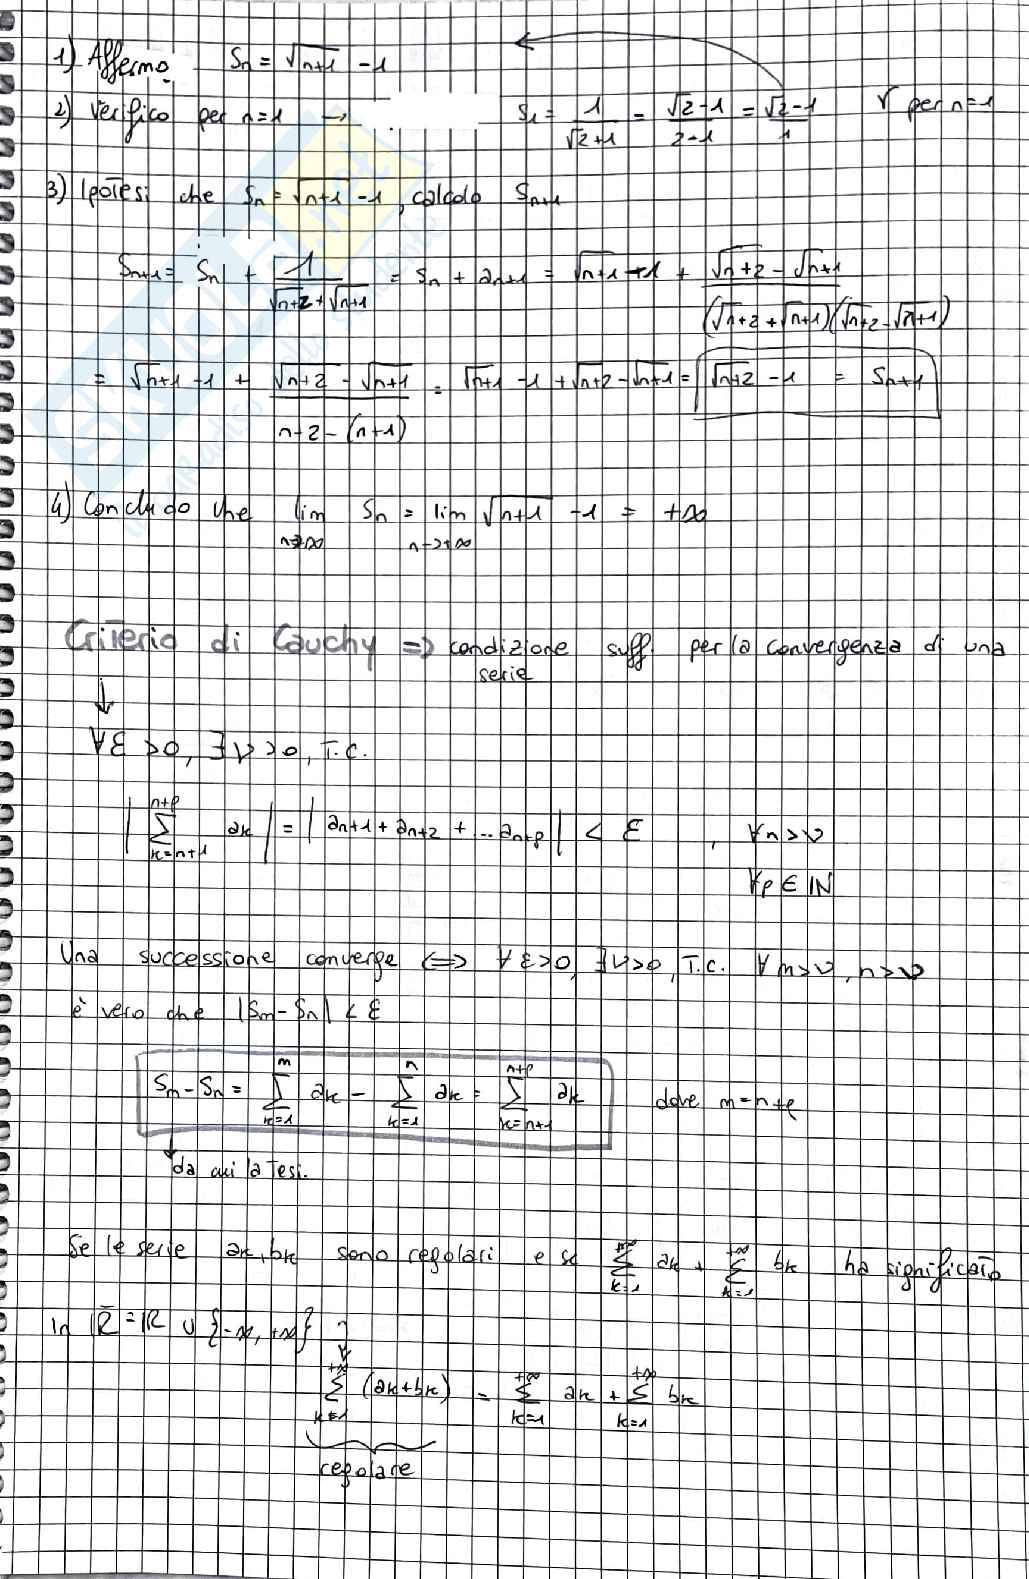 1) Affermo Sn = √n+1 - 1
2) Verifico per n=1 → S1 = 1/(√2+1) = (√2-1)/(2-1) = (√2-1)/1 √ per n=1
3) Ipotesi che Sn = √n+1 - 1, calcolo Sn+1
Sn+1 = Sn + 1/(√n+2 + √n+1) = Sn + an+1 = √n+1 + 1 + (√n+2 - √n+1)/((√n+2 + √n+1)(√n+2 - √n+1))
= √n+1 - 1 + (√n+2 - √n+1)/(n+2-(n+1)) = √n+1 - 1 + √n+2 - √n+1 = √n+2 - 1 = Sn+1
4) Concludo che lim n→∞ Sn = lim n→+∞ √n+1 - 1 = +∞
Criterio di Cauchy => condizione suff. per la convergenza di una
serie
↓
∀ε >0, ∃ν>0, T.C.
|∑ k=n+1 n+p ak| = |an+1 + an+2 + ... an+p| < ε , ∀n>ν
∀p ∈ IN
Una successione converge <=> ∀ε>0, ∃ν>0, T.C. ∀m>ν, n>ν
è vero che |Sm-Sn| < ε
Sm - Sn = ∑ k=1 m ak - ∑ k=1 n ak = ∑ k=n+1 n+p ak dove m=n+p
da cui la Tesi.
Se le serie ak, bk sono regolari e se ∑ k=1 +∞ ak + ∑ k=1 +∞ bk ha significato
in IR̄ = IR ∪ {-∞, +∞}
∑ k=1 +∞ (ak+bk) = ∑ k=1 +∞ ak + ∑ k=1 +∞ bk
regolare